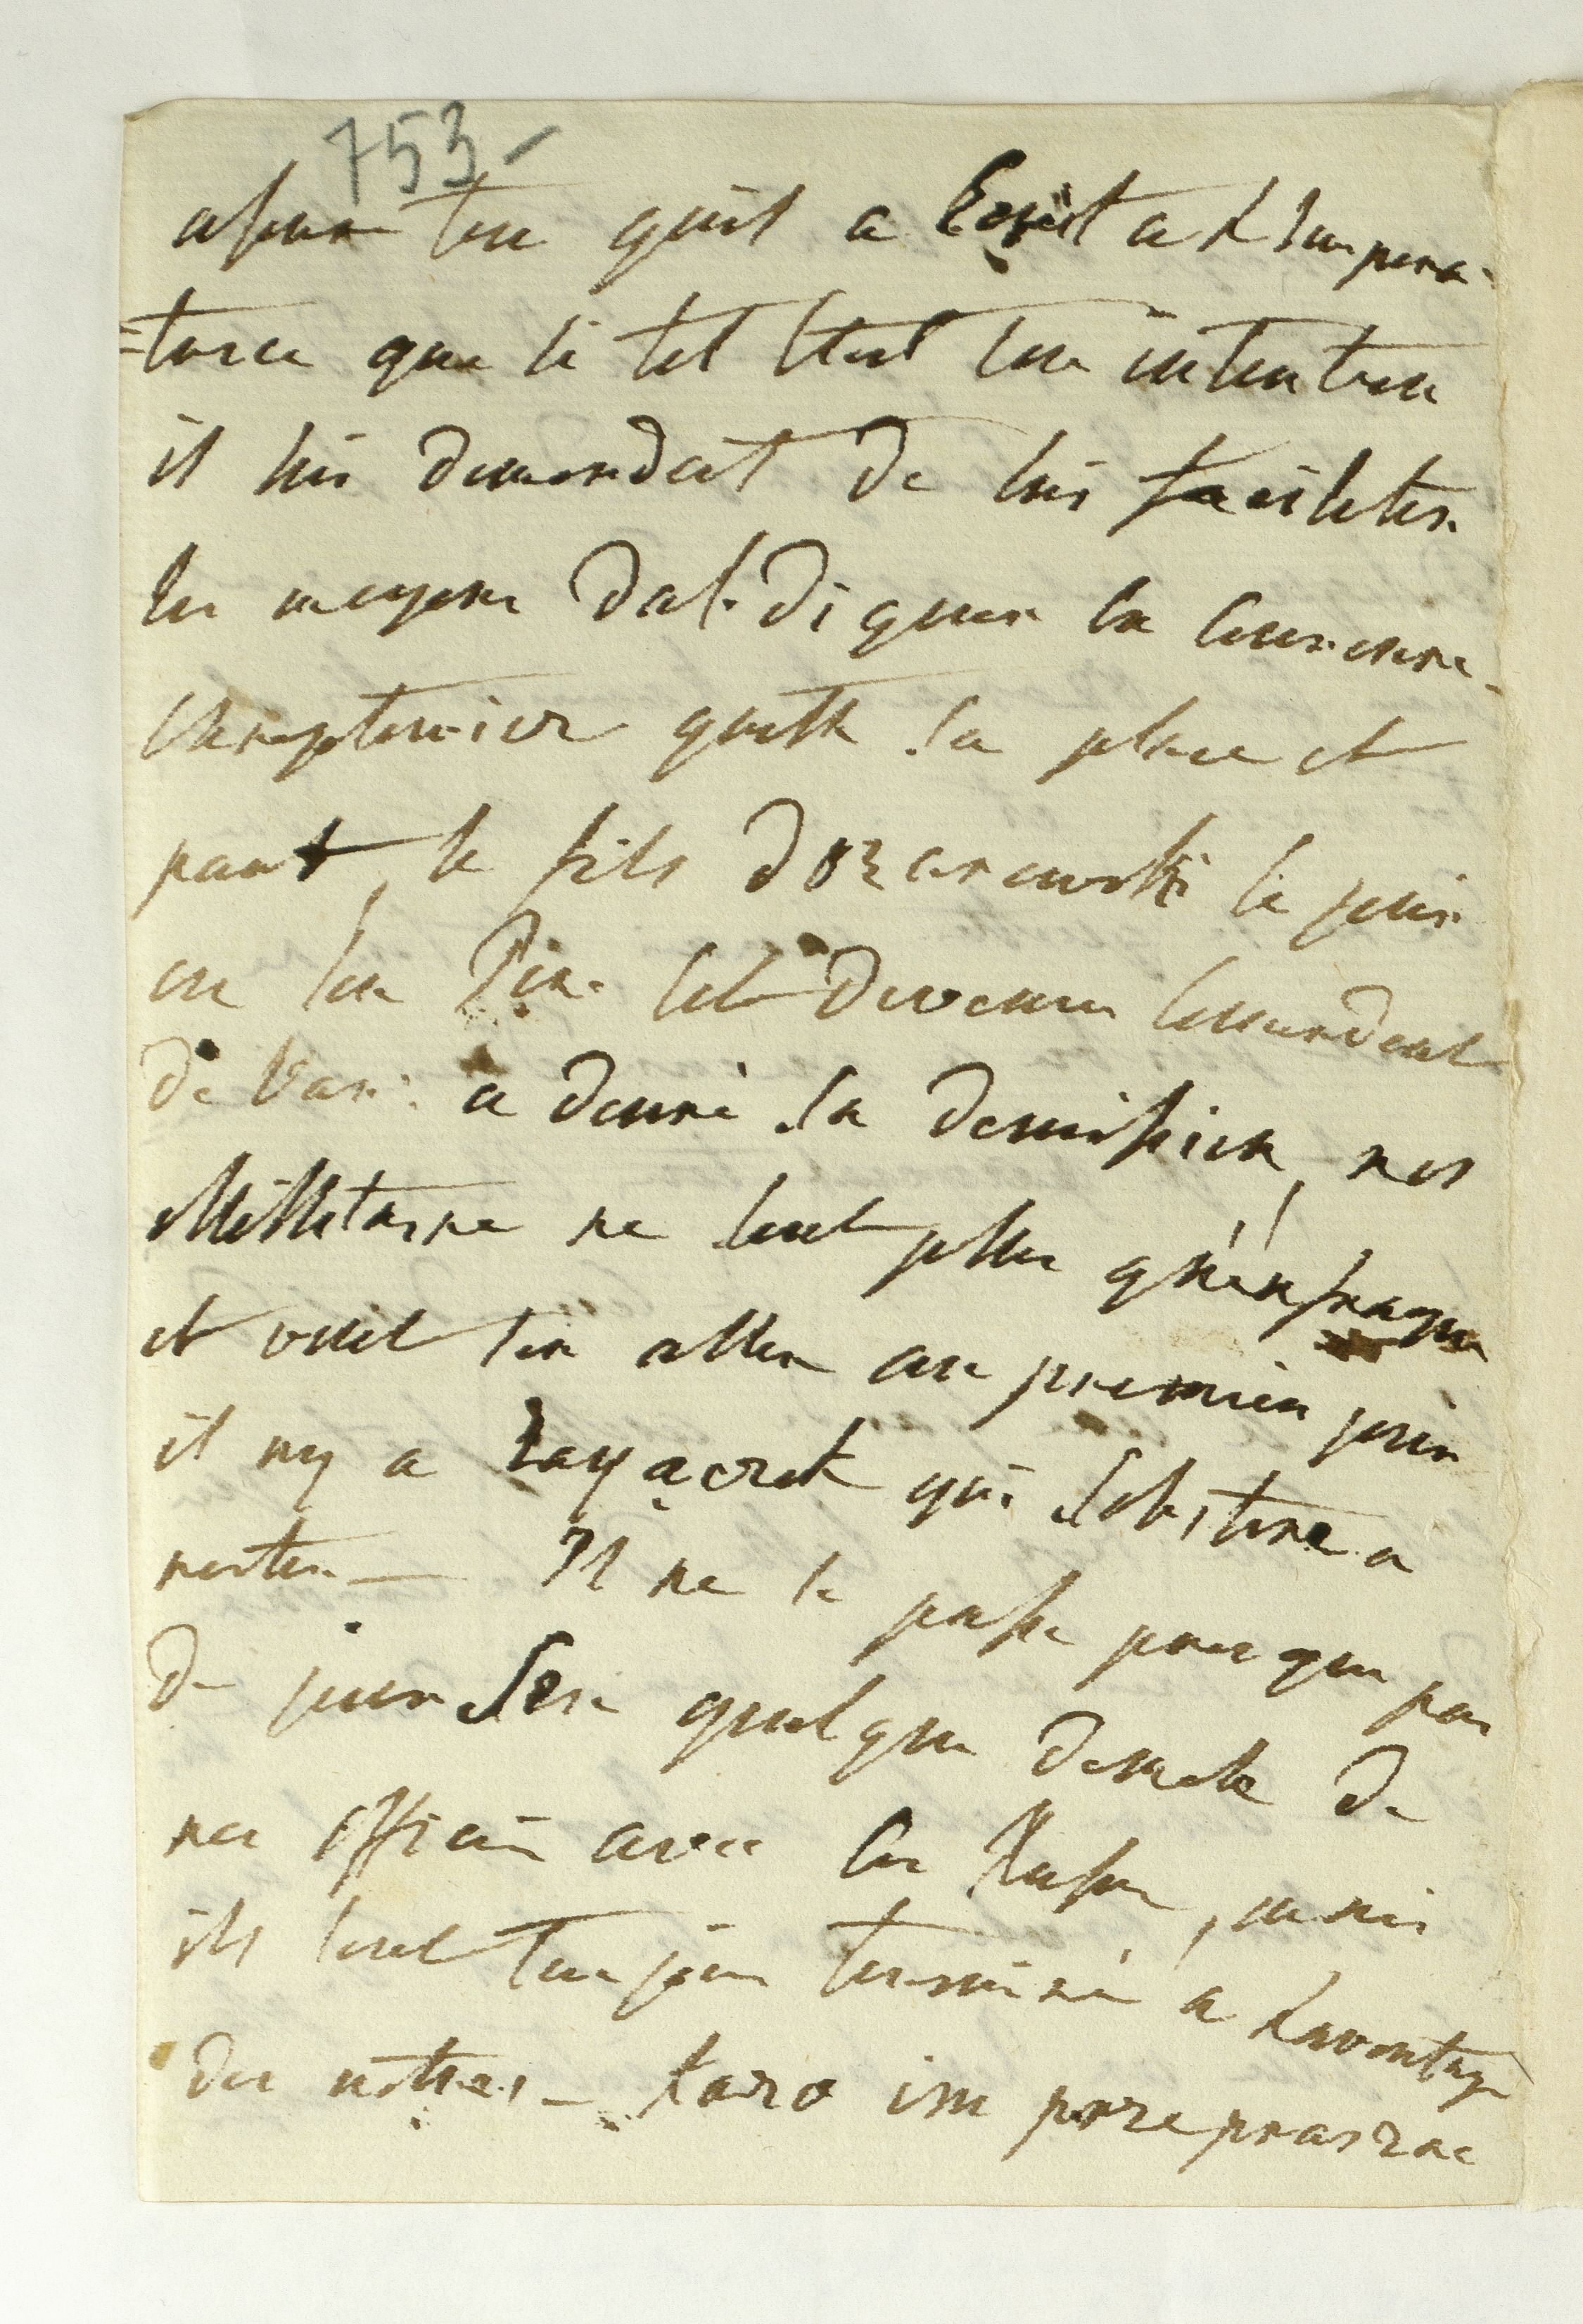 753-
assure t'on quil a Ecrit a L'Impera-
=trice que si tel etoit son intention
il lui demandoit de lui faciliter
les moyens dabdiquer la Couronne-
Chreptowicz quitte sa place et
part, le fils dozarowski le jour
ou son Pere est devenu Comendant
de Vars: a donné sa demission, nos
Militaire ne sont plus
et veulent s'en aller au premier jour
il ny a que qui Sobstine a
rester — Il ne se passe presque pas
de jour Sen quelque demele de
nos officiers avec les Russes, mais
ils sont toujour terminé a Lavantage
des notres - kazo im przepraszac